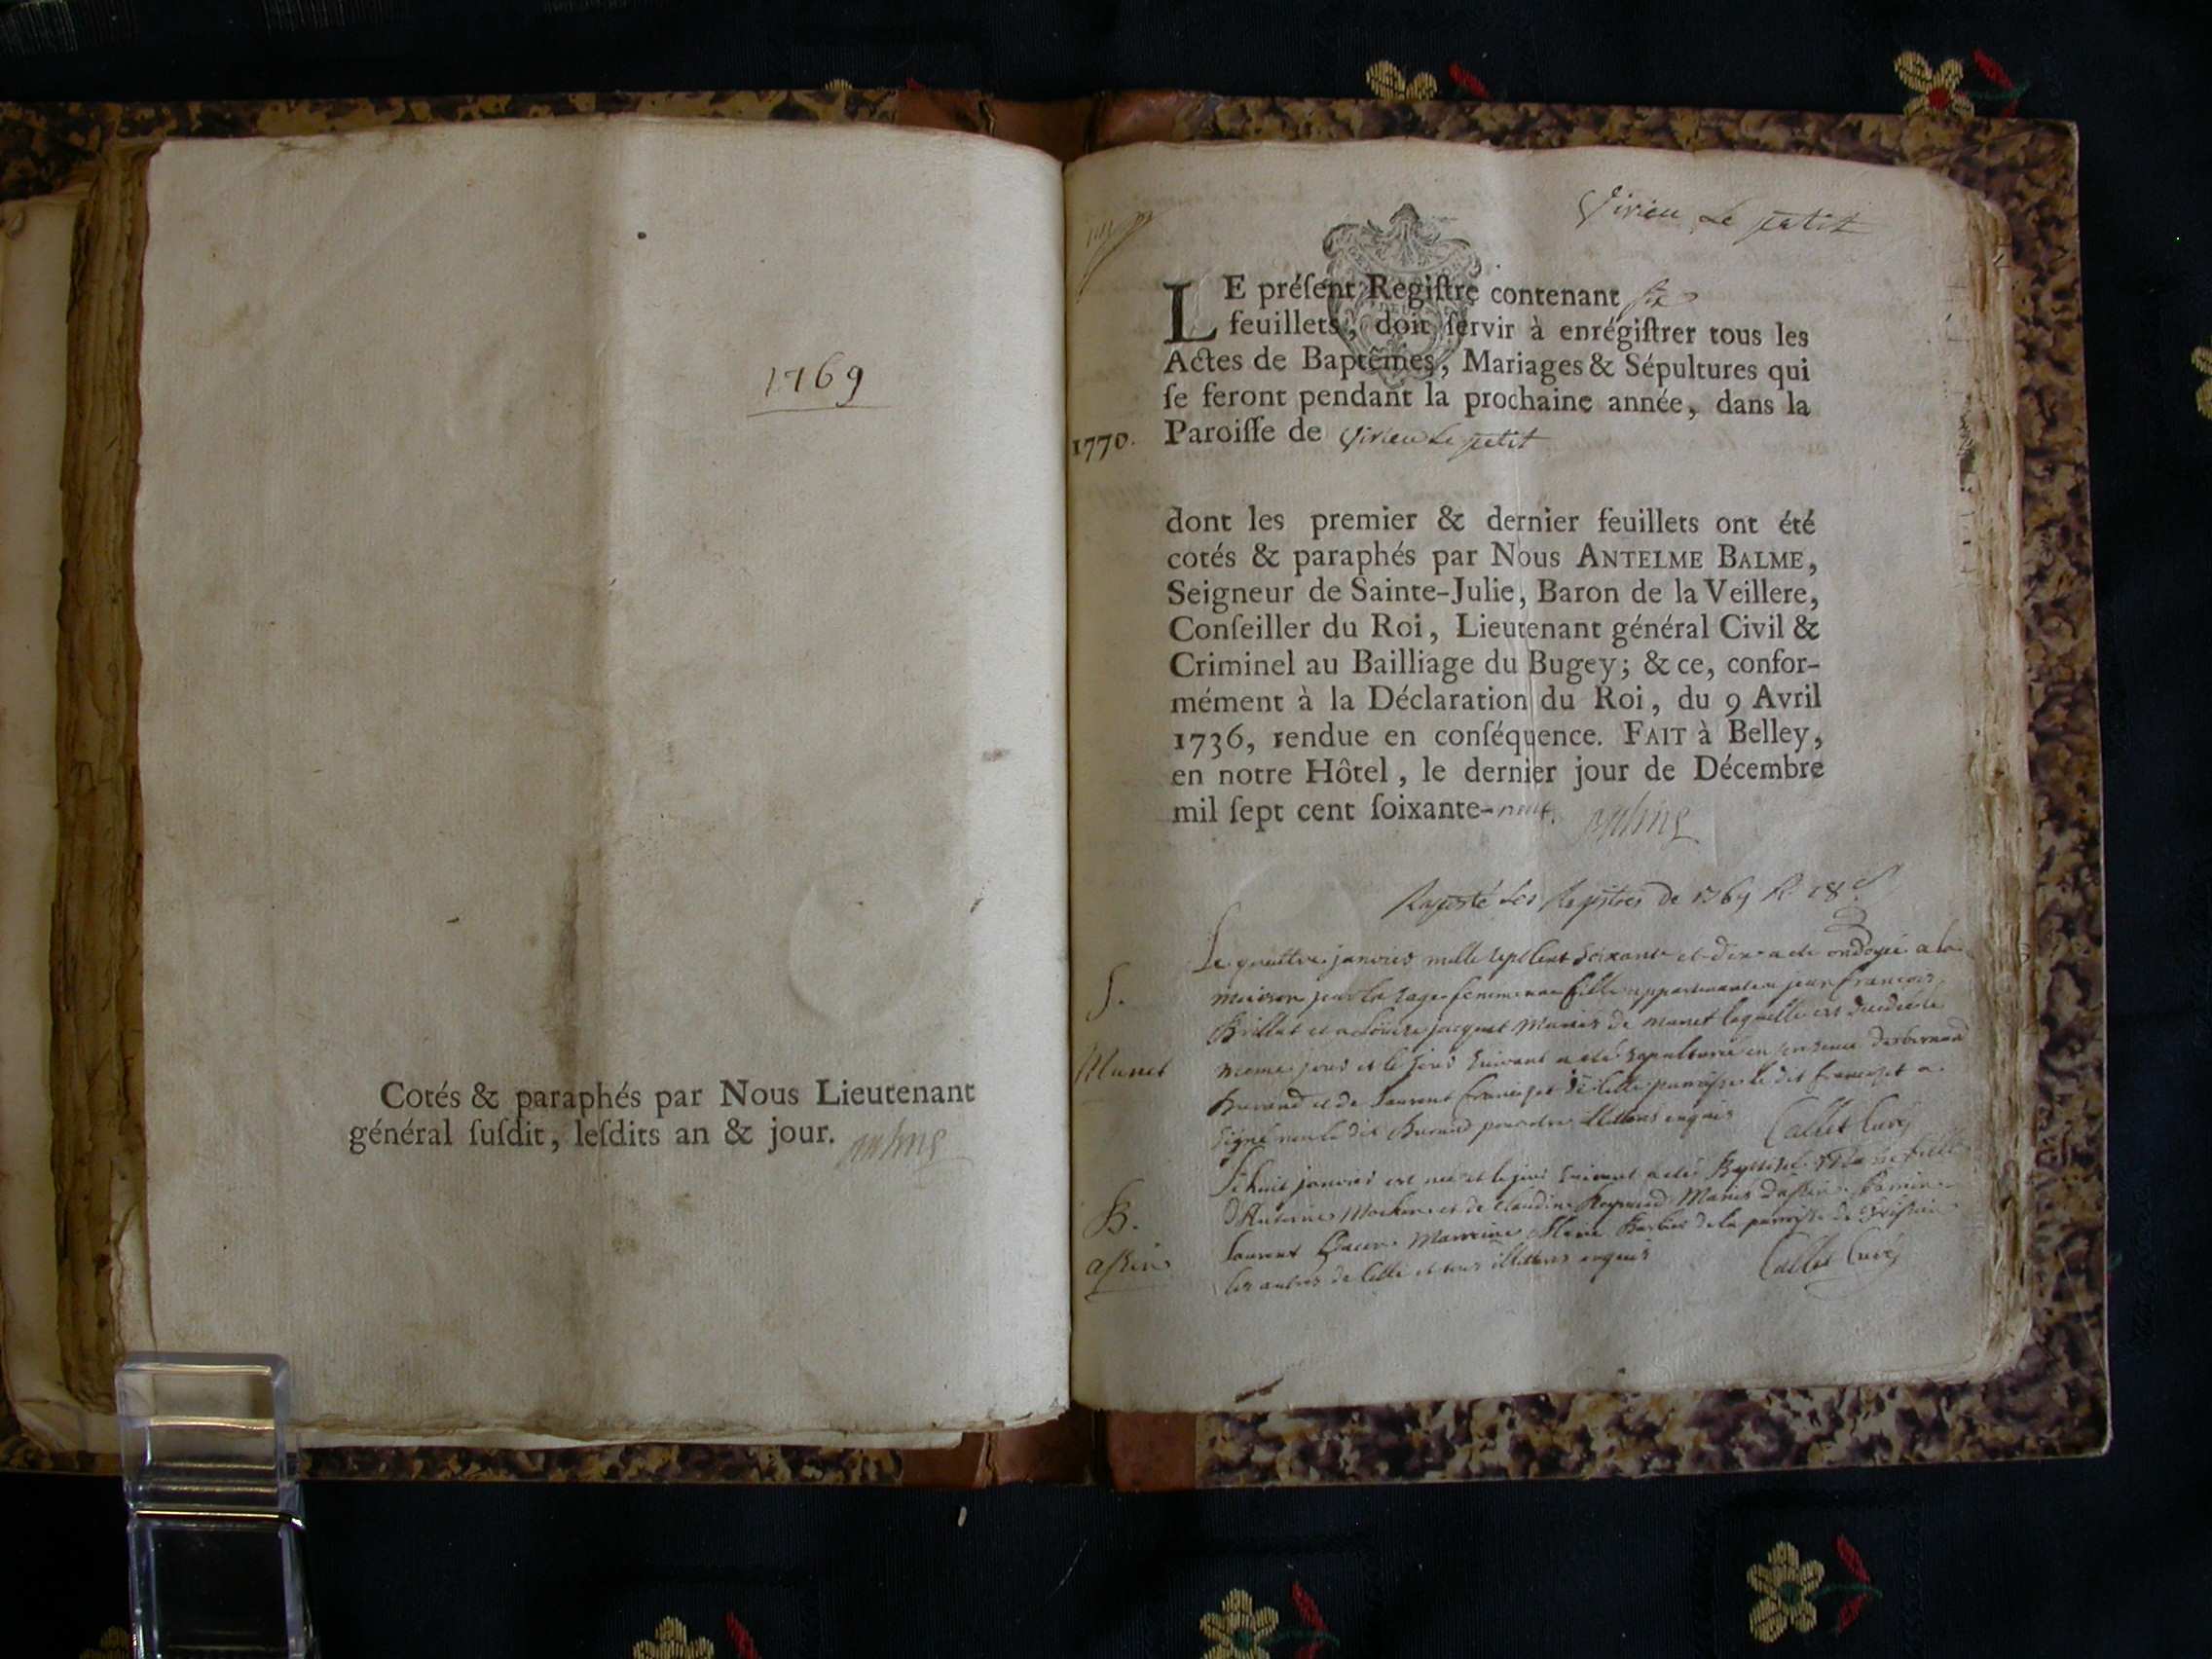 1769
Cotés & paraphés par Nous Lieutenant
général ſuſdit, leſdits an & jour.
Virieu Le petit
LE préſent Regiſtre contenant ſix
feuillets, doit ſervir à enrégiſtrer tous les
Actes de Baptêmes, Mariages & Sépultures qui
ſe feront pendant la prochaine année, dans la
1770. Paroiſſe de Virieu Le petit
dont les premier & dernier feuillets ont été
cotés & paraphés par Nous ANTELME BALME,
Seigneur de Sainte-Julie, Baron de la Veillere,
Conſeiller du Roi, Lieutenant général Civil &
Criminel au Bailliage du Bugey; & ce, confor-
mément à la Déclaration du Roi, du 9 Avril
1736, rendue en conſéquence. FAIT à Belley,
en notre Hôtel, le dernier jour de Décembre
mil ſept cent ſoixante-neuf.
Registres de 1769
Le quattre janvier mille sept Cent soixante et dix a ete ondoyé a la
S. maison par la sage femme une fille appartenante a jean francois
Brillat et a Louise jacquet Mariés de munet laquelle est decedée le
Munet meme jour et le jour suivant a été sepulturée en presence de bernard
Burand et de Laurent francojet de cette parroisse le dit francojet a
signé non le dit Burand pour etre illitteré enquis Callet Curé
Le huit janvier est née et le jour suivant a été Baptisée fille
B. d'Antoine et de Claudine Reynaud Mariés d'assin Parrain
Laurent Marreine Marie Barbier de la parroisse de
assin les autres de Cette et tous illitterés enquis Callet Curé